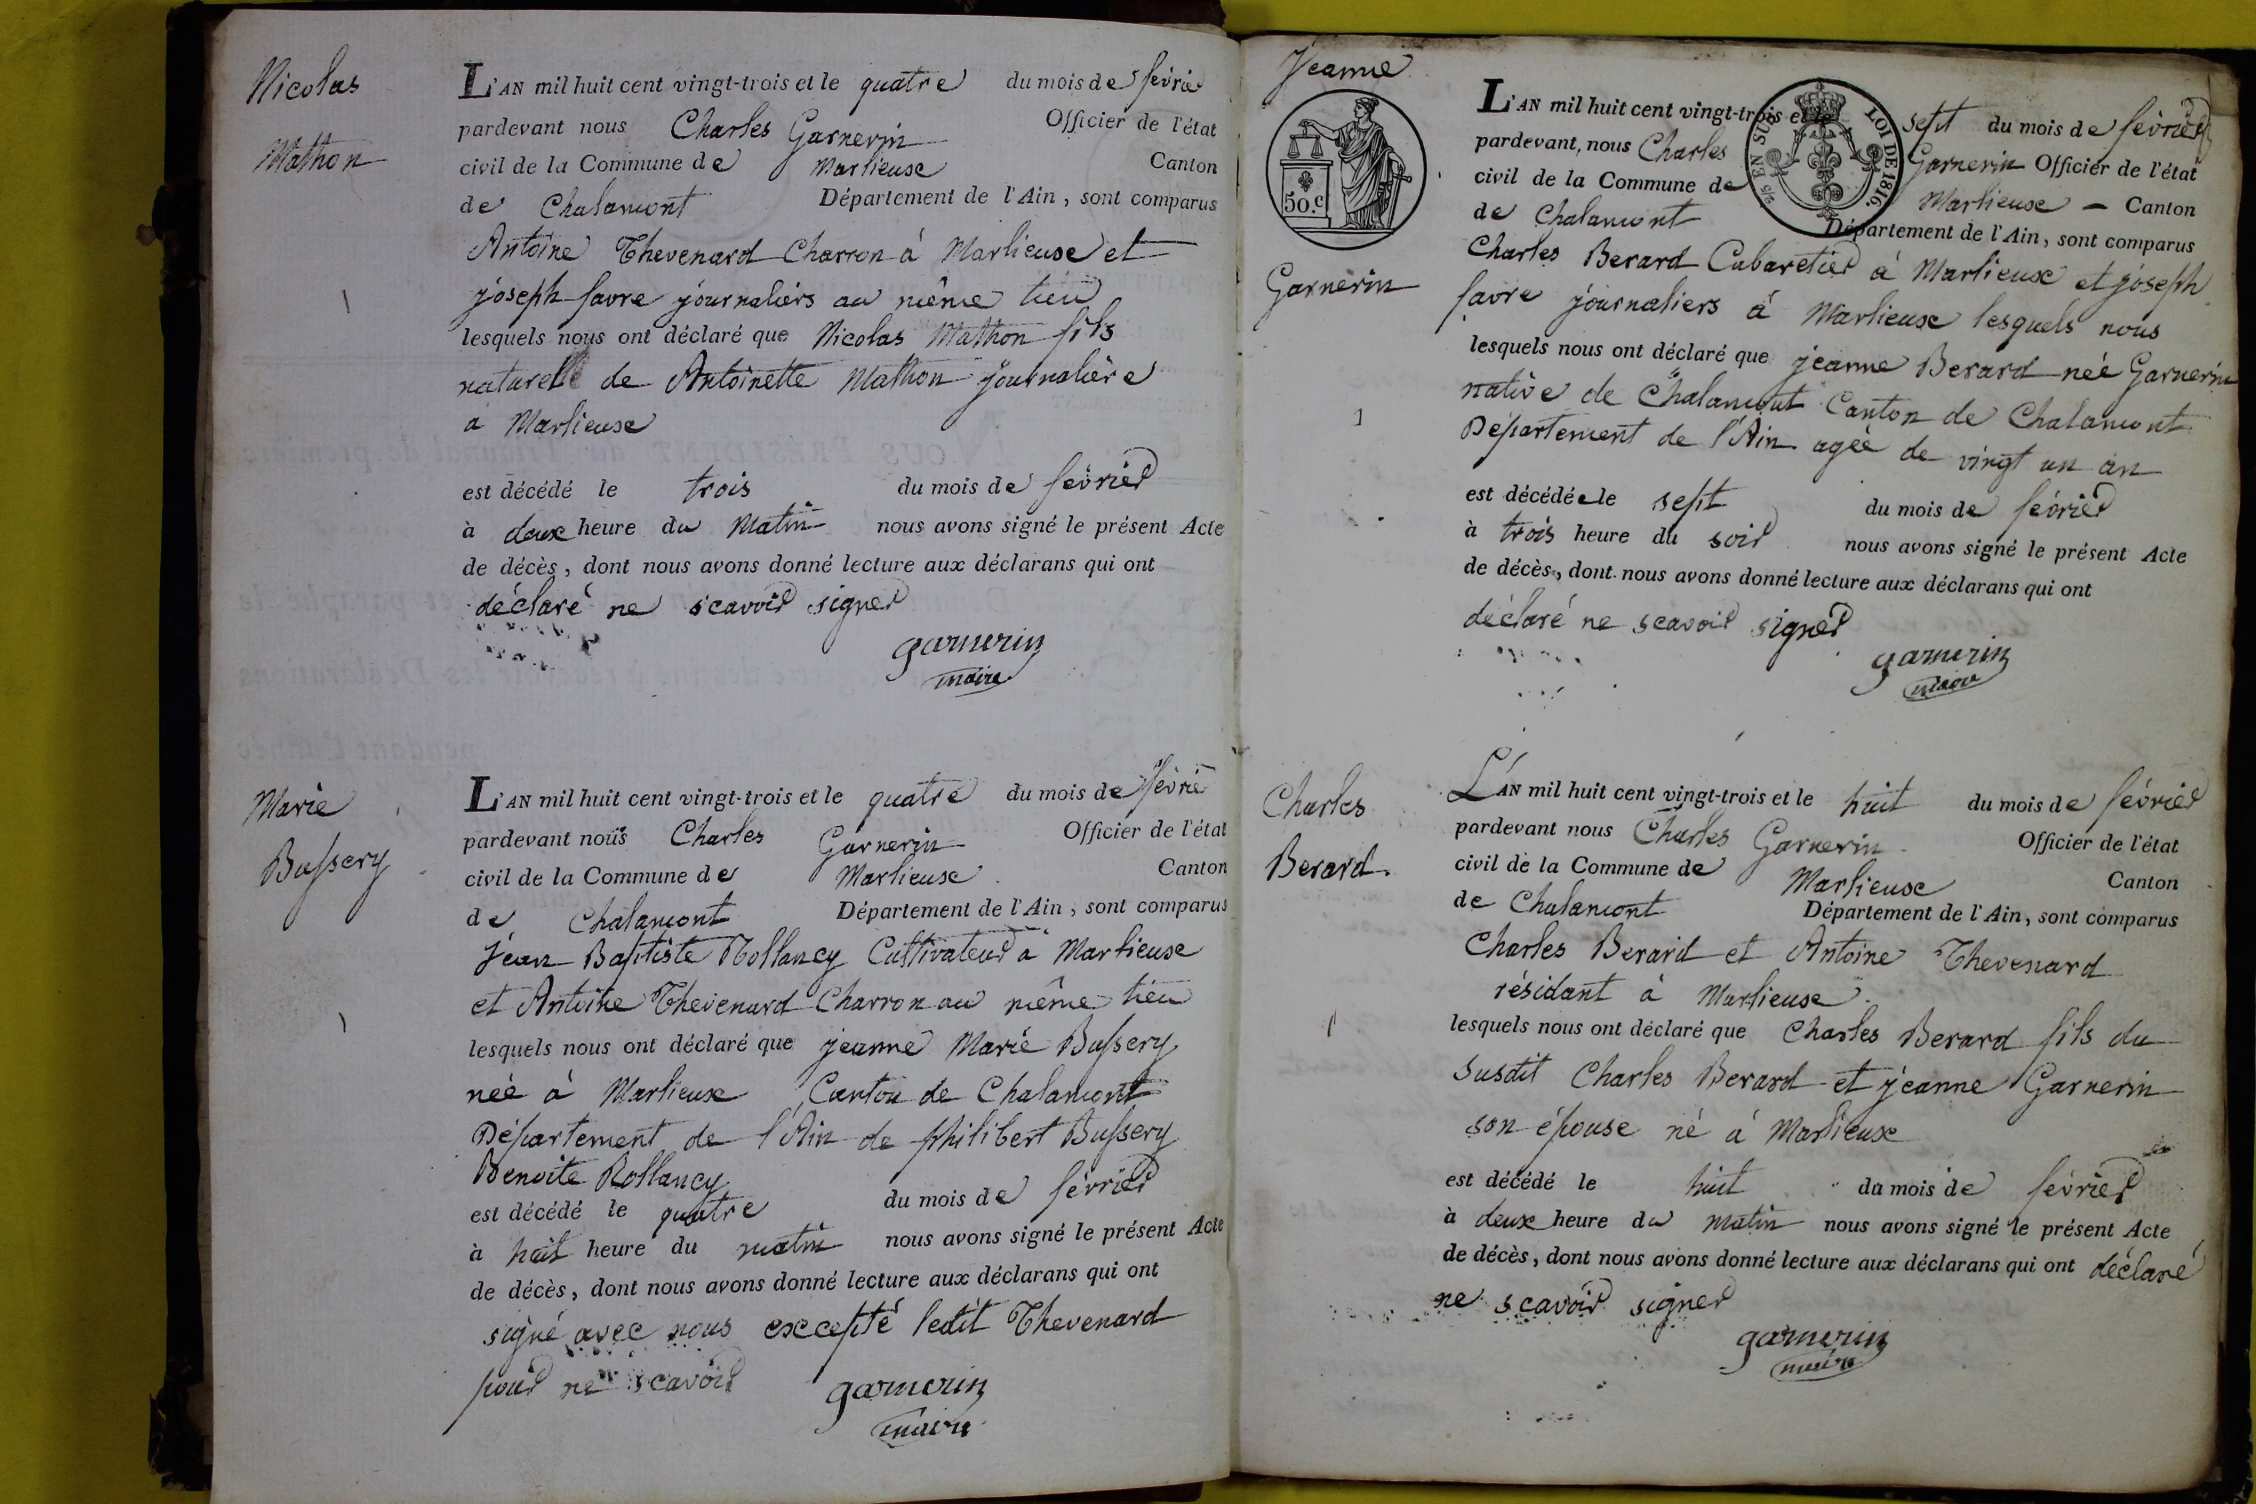 Nicolas
Mathon
L'AN mil huit cent vingt-trois et le quatre du mois de fevrier
pardevant nous Charles Garnerin Officier de l'état
civil de la Commune de Marlieux Canton
de Chalamont Département de l'Ain, sont comparus
Antoine Thevenard Charron à Marlieux et
joseph favre journaliers au même lieu
lesquels nous ont déclaré que Nicolas Mathon fils
naturel de Antoinette Mathon journalière
a Marlieux
est décédé le trois du mois de fevrier
à deux heure du Matin nous avons signé le présent Acte
de décès, dont nous avons donné lecture aux déclarans qui ont
déclaré ne scavoir signer
garnerin
maire
Marie
Bussery
L'AN mil huit cent vingt-trois et le quatre du mois de fevrier
pardevant nous Charles Garnerin Officier de l'état
civil de la Commune de Marlieux Canton
de Chalamont Département de l'Ain, sont comparus
Jean Baptiste Rollancy Cultivateur à Marlieux
et Antoine Thevenard Charron au même lieu
lesquels nous ont déclaré que jeanne Marie Bussery
née à Marlieux Canton de Chalamont
Département de l'Ain de philibert Bussery
Benoite Rollancy
est décédé le quatre du mois de fevrier
à huit heure du matin nous avons signé le présent Acte
de décès, dont nous avons donné lecture aux déclarans qui ont
signé avec nous excepté ledit Thevenard
pour ne scavoir
garnerin
maire
Jeanne
Garnerin
50.c
EN SUS
LOI DE 1816.
L'AN mil huit cent vingt-trois et le sept du mois de fevrier
pardevant, nous Charles Garnerin Officier de l'état
civil de la Commune de Marlieux - Canton
de Chalamont Département de l'Ain, sont comparus
Charles Berard Cabaretier à Marlieux et joseph
favre journaliers à Marlieux lesquels nous
lesquels nous ont déclaré que jeanne Berard née Garnerin
native de Chalamont Canton de Chalamont
Département de l'Ain agée de vingt un an
est décédée le sept du mois de fevrier
à trois heure du soir nous avons signé le présent Acte
de décès, dont nous avons donné lecture aux déclarans qui ont
déclaré ne scavoir signer
garnerin
maire
Charles
Berard.
L'AN mil huit cent vingt-trois et le huit du mois de fevrier
pardevant nous Charles Garnerin Officier de l'état
civil de la Commune de Marlieux Canton
de Chalamont Département de l'Ain, sont comparus
Charles Berard et Antoine Thevenard
résidant à Marlieux
lesquels nous ont déclaré que Charles Berard fils du
susdit Charles Berard et jeanne Garnerin
son épouse né à Marlieux
est décédé le huit du mois de fevrier
à deux heure du matin nous avons signé le présent Acte
de décès, dont nous avons donné lecture aux déclarans qui ont déclaré
ne scavoir signer
garnerin
maire